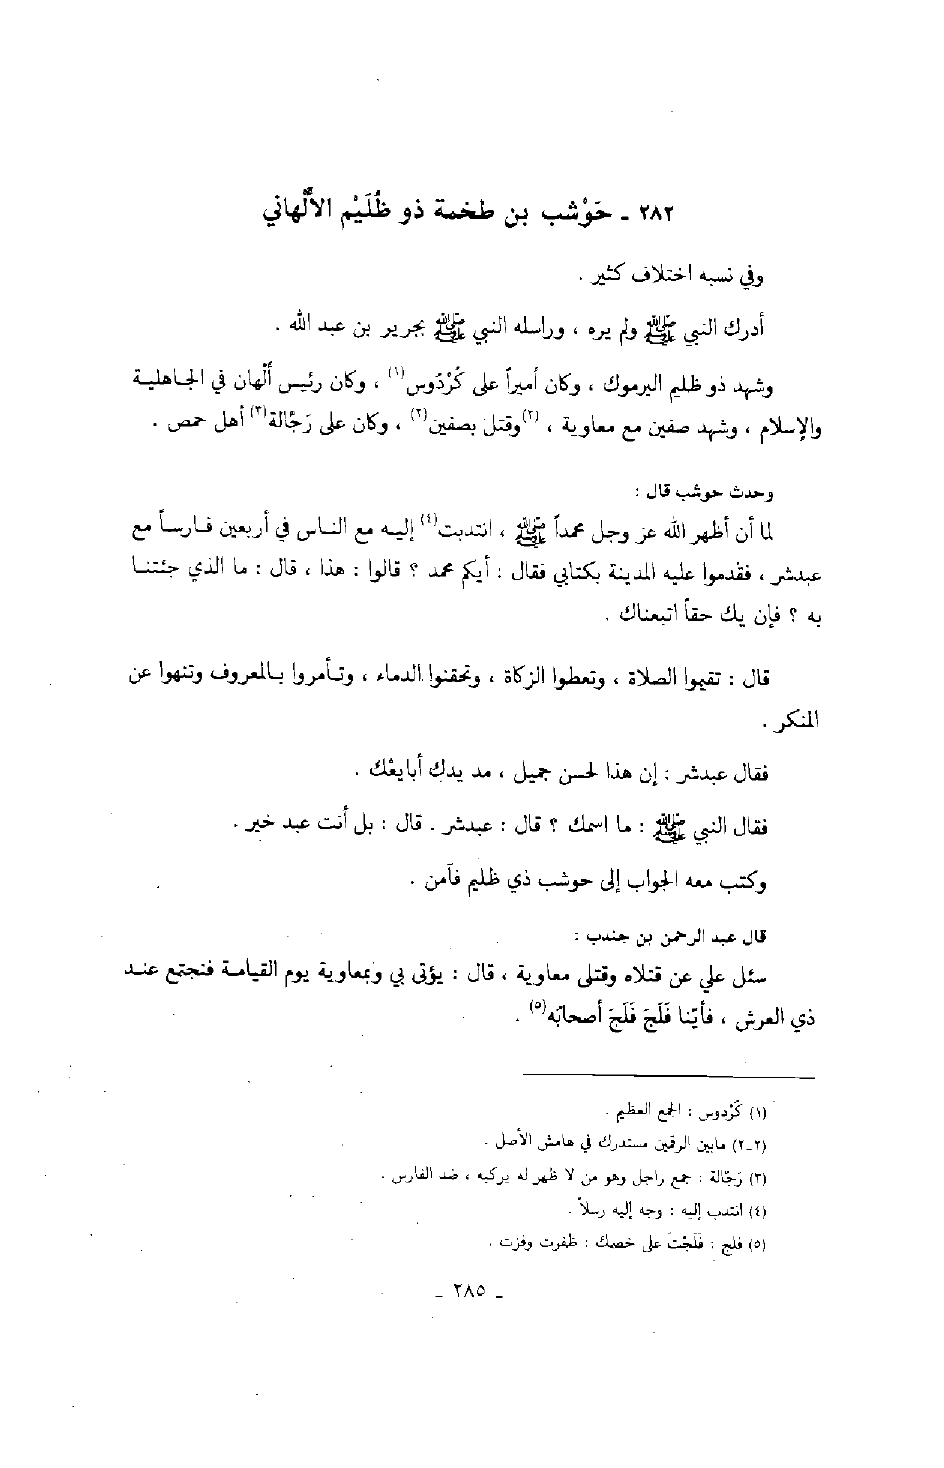 ٢٨٢ ـ حَوْشب بن طخمة ذو ظُلَيْم الأَلْهاني
وفي نسبه اختلاف كثير .
أدرك النبي ﷺ ولم يره ، وراسله النبي ﷺ بجرير بن عبد الله .
وشهد ذو ظليم اليرموك ، وكان أميراً على كُرْدَوس(١) ، وكان رئيس أَلْهان في الجاهلية
والإسلام ، وشهد صفين مع معاوية ، (٢)وقتل بصفين(٢) ، وكان على رَجّالة(٣) أهل حمص .
وحدث حوشب قال :
لما أن أظهر الله عز وجل محمداً ﷺ ، انتدبت(٤) إليه مع الناس في أربعين فارساً مع
عبدشر ، فقدموا عليه المدينة بكتابي فقال : أيكم محمد ؟ قالوا : هذا ، قال : ما الذي جئتنا
به ؟ فإن يك حقاً اتبعناك .
قال : تقيموا الصلاة ، وتعطوا الزكاة ، وتحقنوا الدماء ، وتأمروا بالمعروف وتنهوا عن
المنكر .
فقال عبدشر : إن هذا لحسن جميل ، مد يدك أبايعْك .
فقال النبي ﷺ : ما اسمك ؟ قال : عبدشر . قال : بل أنت عبد خير .
وكتب معه الجواب إلى حوشب ذي ظليم فآمن .
قال عبد الرحمن بن جندب :
سئل علي عن قتلاه وقتلى معاوية ، قال : يؤتى بي وبمعاوية يوم القيامة فنجتمع عند
ذي العرش ، فأيّنا فَلَجَ فَلَجَ أصحابُه(٥) .
(١) كُرْدوس : الجمع العظيم .
(٢-٢) مابين الرقمين مستدرك في هامش الأصل .
(٣) رَجّالة : جمع راجل وهو من لا ظهر له يركبه ، ضد الفارس .
(٤) انتدب إليه : وجه إليه رسلاً .
(٥) فلج : فَلَجْتَ على خصمك : ظفرت وفزت .
ـ ٢٨٥ ـ